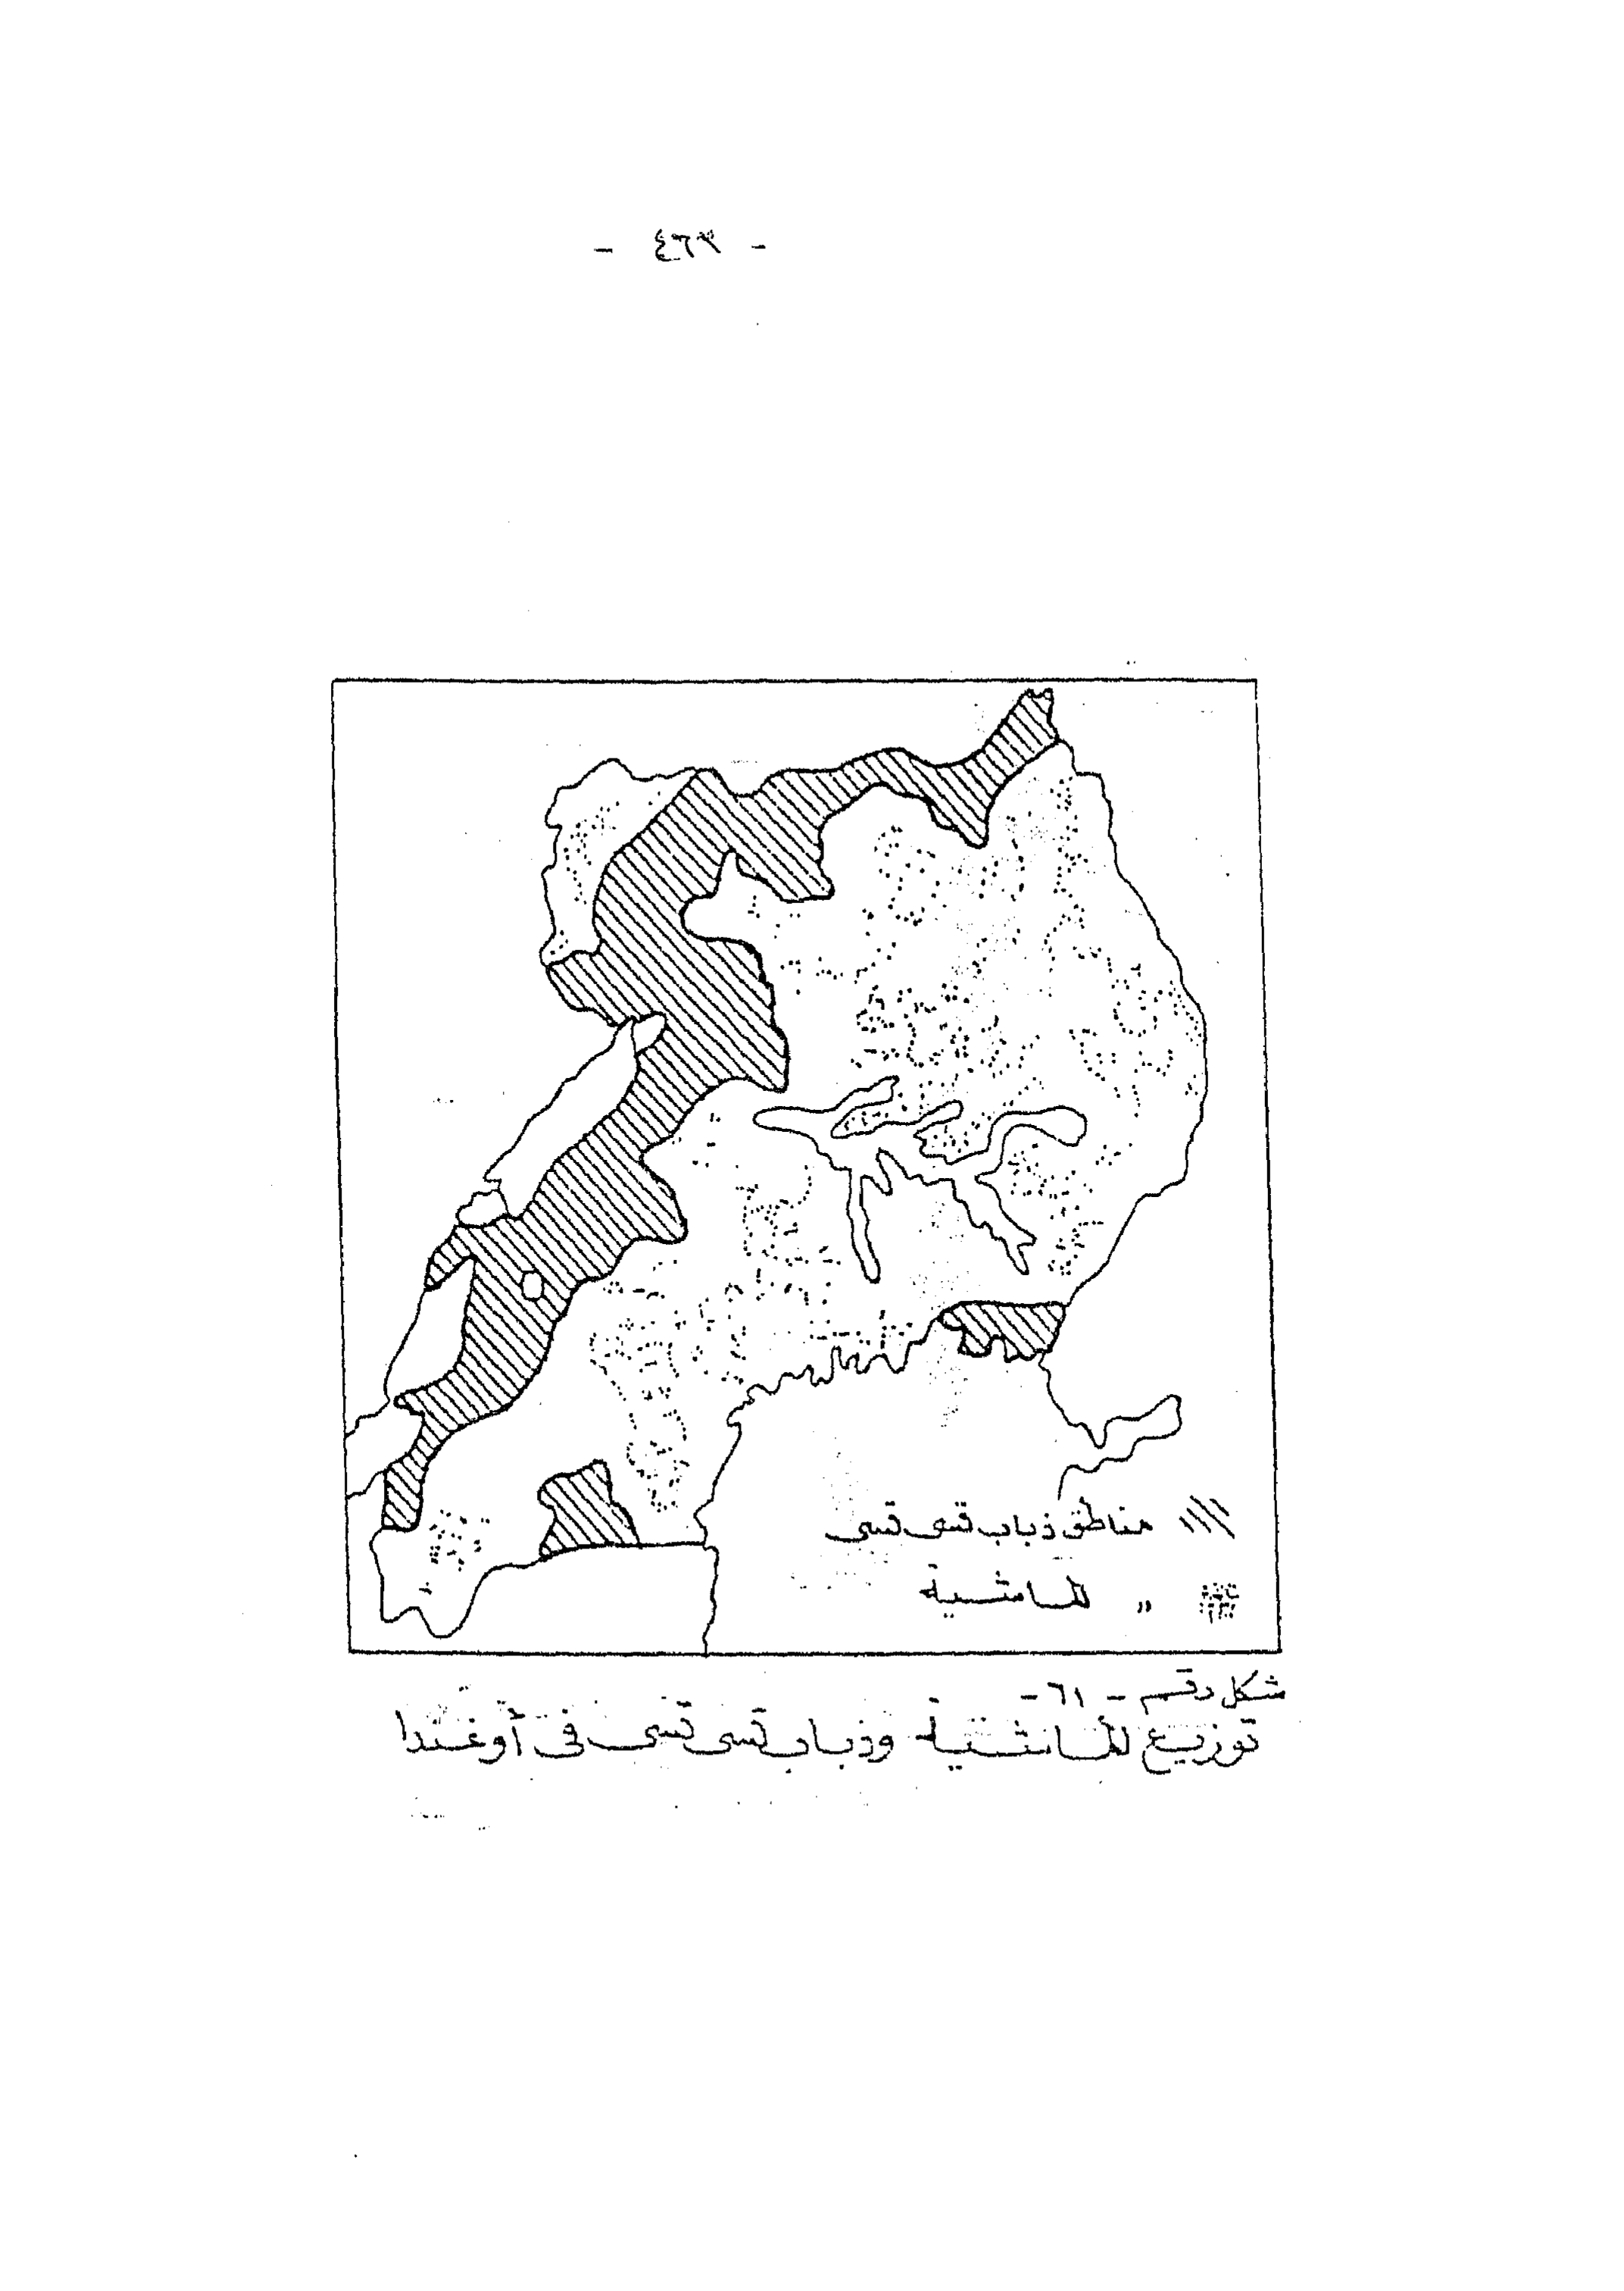 - ٤٦٣ -
مناطق ذباب تسى تسى
" الماشية
شكل رقم - ٦١ -
توزيع الماشية وذباب تسى تسى فى أوغندا